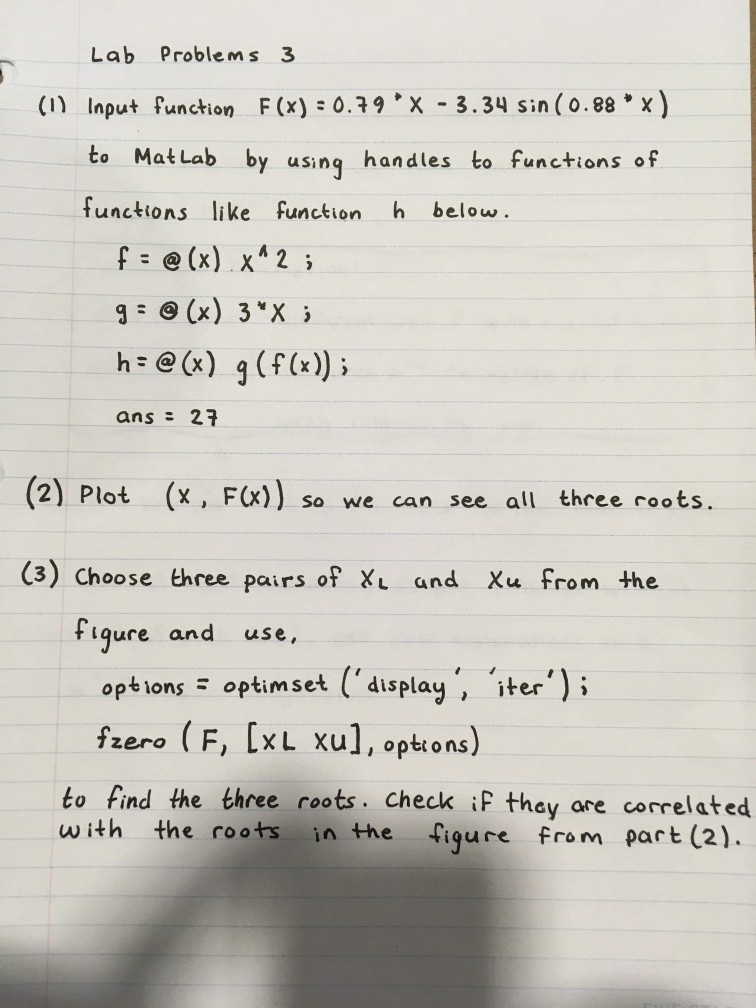 Lab Problems 3
(1) Input function F(x) = 0.79 * X - 3.34 sin(0.88 * X)
to MatLab by using handles to functions of
functions like function h below.
f = @(x) x^2 ;
g = @(x) 3*X ;
h = @(x) g(f(x)) ;
ans = 27
(2) Plot (x, F(x)) so we can see all three roots.
(3) Choose three pairs of XL and Xu from the
figure and use,
options = optimset ('display', 'iter') ;
fzero (F, [XL XU], options)
to find the three roots. Check if they are correlated
with the roots in the figure from part (2).